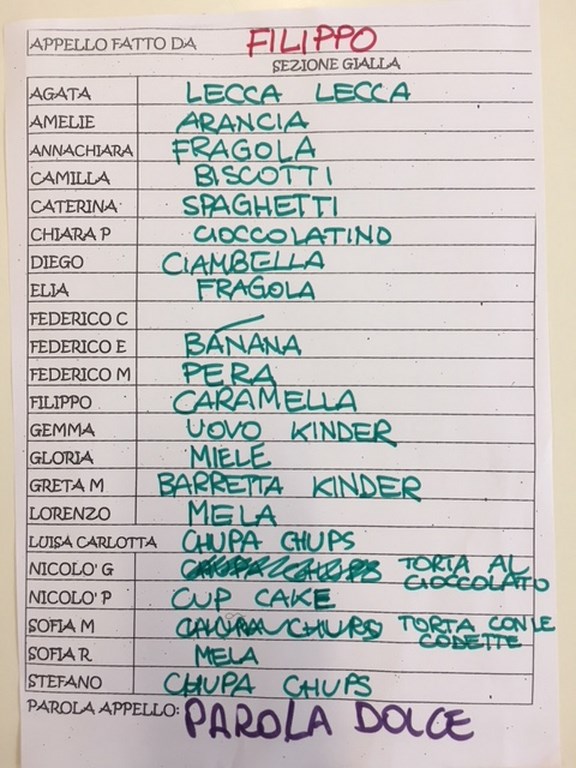 APPELLO FATTO DA FILIPPO
SEZIONE GIALLA
AGATA LECCA LECCA
AMELIE ARANCIA
ANNACHIARA FRAGOLA
CAMILLA BISCOTTI
CATERINA SPAGHETTI
CHIARA P CIOCCOLATINO
DIEGO CIAMBELLA
ELIA FRAGOLA
FEDERICO C
FEDERICO E BANANA
FEDERICO M PERA
FILIPPO CARAMELLA
GEMMA UOVO KINDER
GLORIA MIELE
GRETA M BARRETTA KINDER
LORENZO MELA
LUISA CARLOTTA CHUPA CHUPS
NICOLO' G CHUPA CHUPS TORTA AL
CIOCCOLATO
NICOLO' P CUP CAKE
SOFIA M CHUPA CHUPS TORTA CON LE
CODETTE
SOFIA R MELA
STEFANO CHUPA CHUPS
PAROLA APPELLO: PAROLA DOLCE